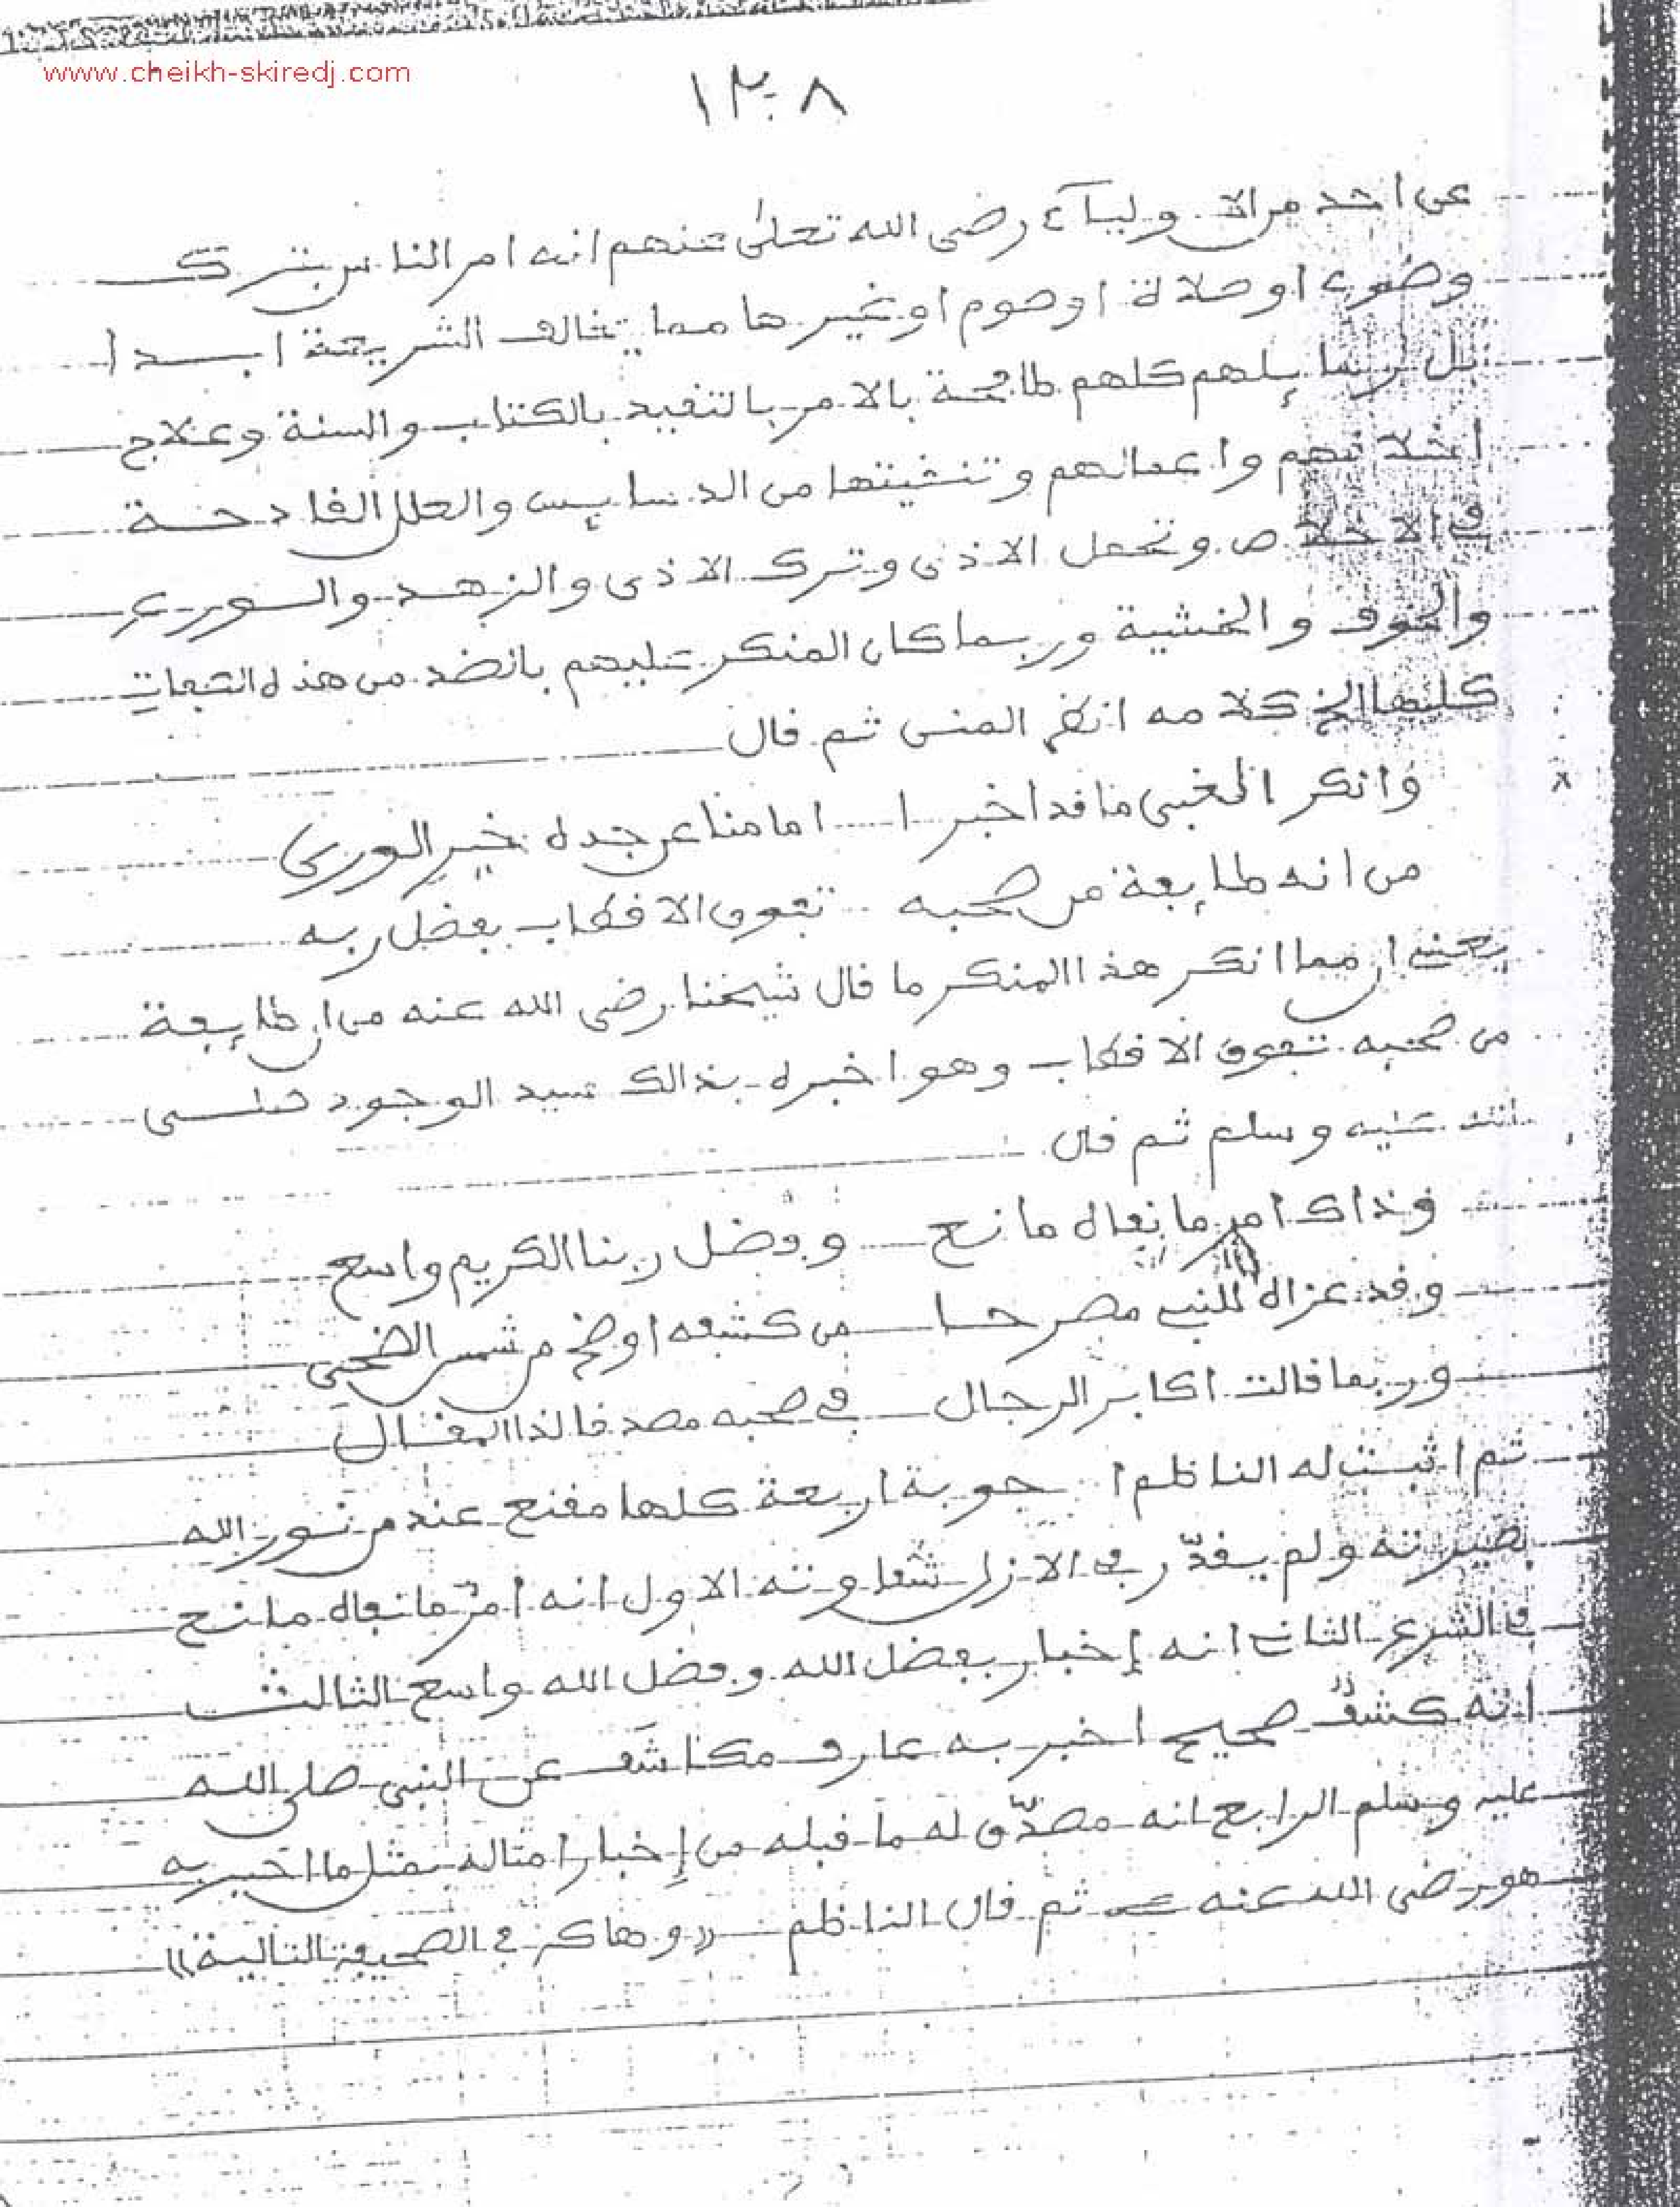 www.cheikh-skiredj.com
عن احد من الاولياء رضى الله تعلى عنهم انه امر الناس بترك
وضوء او صلاة او صوم او غيرها مما يخالف الشريعة ابدا
بل رسايلهم كلهم طافحة بالامر بالتقيد بالكتاب والسنة وعلاج
اخلاقهم واعمالهم وتنقيتها من الدسايس والعلل القادحة
في الاخلاص وتحمل الاذى وترك الاذى والزهد والورع
والخوف والخشية وربما كان المنكر عليهم بالضد من هذه الصفات
كلها الخ كلامه انظر المنى ثم قال
وانكر الغبى ما قد اخبرا ... امامنا عن جده خير الورى
من انه طايعة من صحبه .. تفوق الاقطاب بفضل ربه
يعنى ان مما انكر هذا المنكر ما قال شيخنا رضى الله عنه من ان طايعة
من صحبه تفوق الاقطاب وهو اخبره بذالك سيد الوجود صلى
الله عليه وسلم ثم قال
وذاك امر ما نفاه مانع وفضل ربنا الكريم واسع
وقد عزاه للنبى مصرحا من كشفه اوضح من شمس الضحى
وربما قالت اكابر الرجال في صحبه مصدقا لذا المقال
ثم اثبت له الناظم اجوبة اربعة كلها مقنع عند من نور الله
بصيرته ولم يقدّر في الازل شقاوته الاول انه امر ما نفاه مانع
في الشرع الثانى انه إخبار بفضل الله وفضل الله واسع الثالث
انه كشف صحيح اخبر به عارف مكاشَف عن النبى صلى الله
عليه وسلم الرابع انه مصدّق له ما قبله من إخبار امثاله بمثل ما اخبر به
هو رضى الله عنه ثم قال الناظم ((وهاكه في الصحيفة التالية))